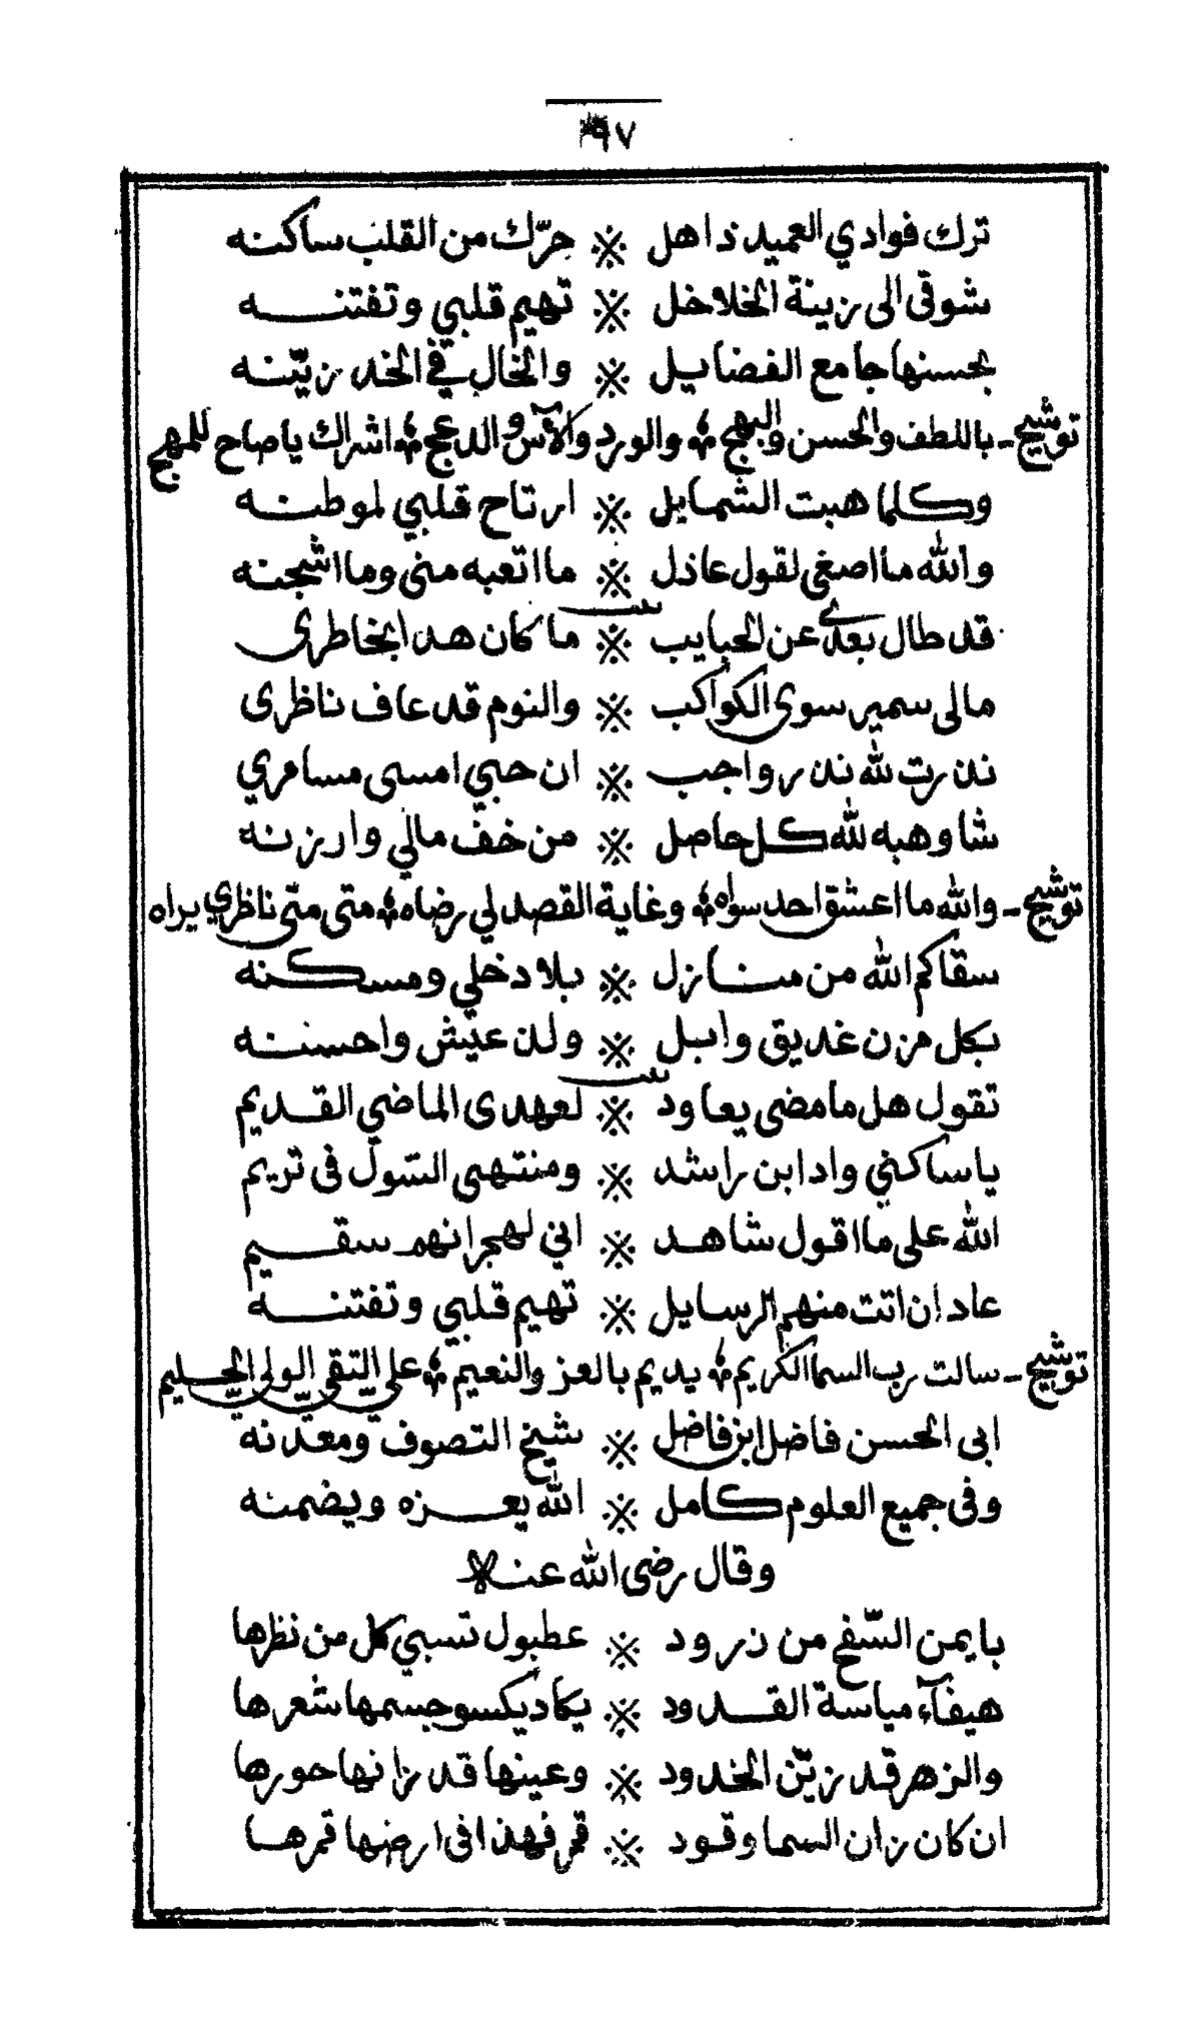 ٩٧
ترك فوادي العميد ذاهل ※ حرّك من القلب ساكنه
شوقى الى زينة الخلاخل ※ تهيم قلبي وتفتنه
بحسنها جامع الفضايل ※ والخال في الخد زيّنه
توشيح - باللطف والحسن والبهج والورد والآس والدعج اشراك ياصاح للمهج
وكلما هبت الشمايل ※ ارتاح قلبي لموطنه
والله ما اصغى لقول عاذل ※ ما اتعبه منى وما اشجنه
بيت
قد طال بعدي عن الحبايب ※ ما كان هذا بخاطرى
مالى سمير سوى الكواكب ※ والنوم قد عاف ناظرى
نذرت لله نذر واجب ※ ان حبي امسى مسامري
شاوهبه لله كل حاصل ※ من خف مالي وارزنه
توشيح - والله ما اعشق احد سواه وغاية القصد لي رضاه متى متى ناظري يراه
سقاكم الله من منازل ※ بلاد خلي ومسكنه
بكل مزن غديق وابل ※ ولذ عيش واحسنه
بيت
تقول هل مامضى يعاود ※ لعهدى الماضي القديم
ياساكني واد ابن راشد ※ ومنتهى السّول فى تريم
الله على ما اقول شاهد ※ اني لهجرانهم سقيم
عاد ان اتت منهم الرسايل ※ تهيم قلبي وتفتنه
توشيح - سالت رب السما الكريم يديم بالعز والنعيم على التقي الولي الحليم
ابى الحسن فاضل ابن فاضل ※ شيخ التصوف ومعدنه
وفى جميع العلوم كامل ※ الله يعزه ويضمنه
وقال رضى الله عنه
بايمن السّفح من زرود ※ عطبول تسبي كل من نظرها
هيفآء مياسة القدود ※ يكاد يكسو جسمها شعرها
والزهر قد زيّن الخدود ※ وعينها قد زانها حورها
ان كان زان السما وقود ※ قمر فهذا فى ارضها قمرها